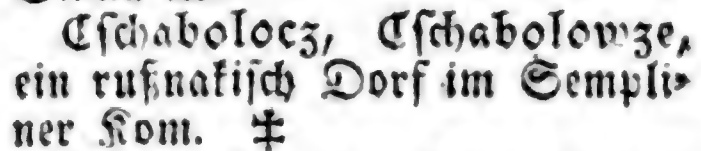 Cſchabolocz, Cſchabolowze,
ein rußnakiſch Dorf im Sempli⸗
ner Kom. ‡